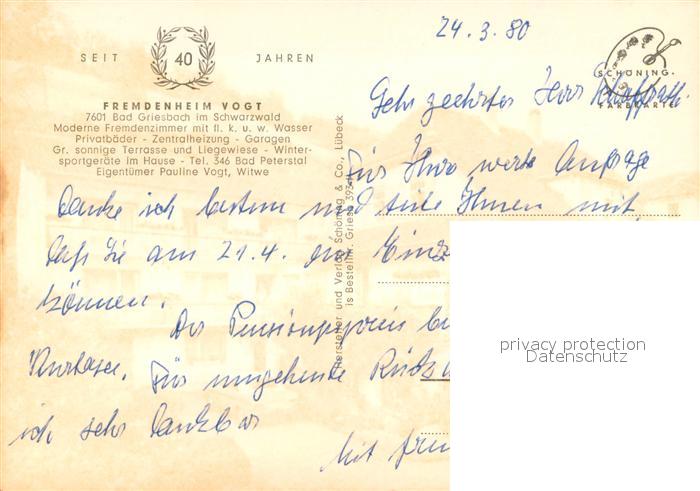 24.3.80
SEIT 40 JAHREN
SCHÖNING
FARBKARTE
FREMDENHEIM VOGT
7601 Bad Griesbach im Schwarzwald
Moderne Fremdenzimmer mit fl. k. u. w. Wasser
Privatbäder - Zentralheizung - Garagen
Gr. sonnige Terrasse und Liegewiese - Winter-
sportgeräte im Hause - Tel. 346 Bad Peterstal
Eigentümer Pauline Vogt, Witwe
Hersteller und Verlag Schöning & Co., Lübeck
Sehr geehrter Herr
Für Ihre werte Anfrage
danke ich bestens und teile Ihnen mit,
daß Sie am 21.4. die Einz
können.
Der Pensionspreis
Kurtaxe. Für umgehende Rück
ich sehr dankbar
Mit freu
privacy protection
Datenschutz